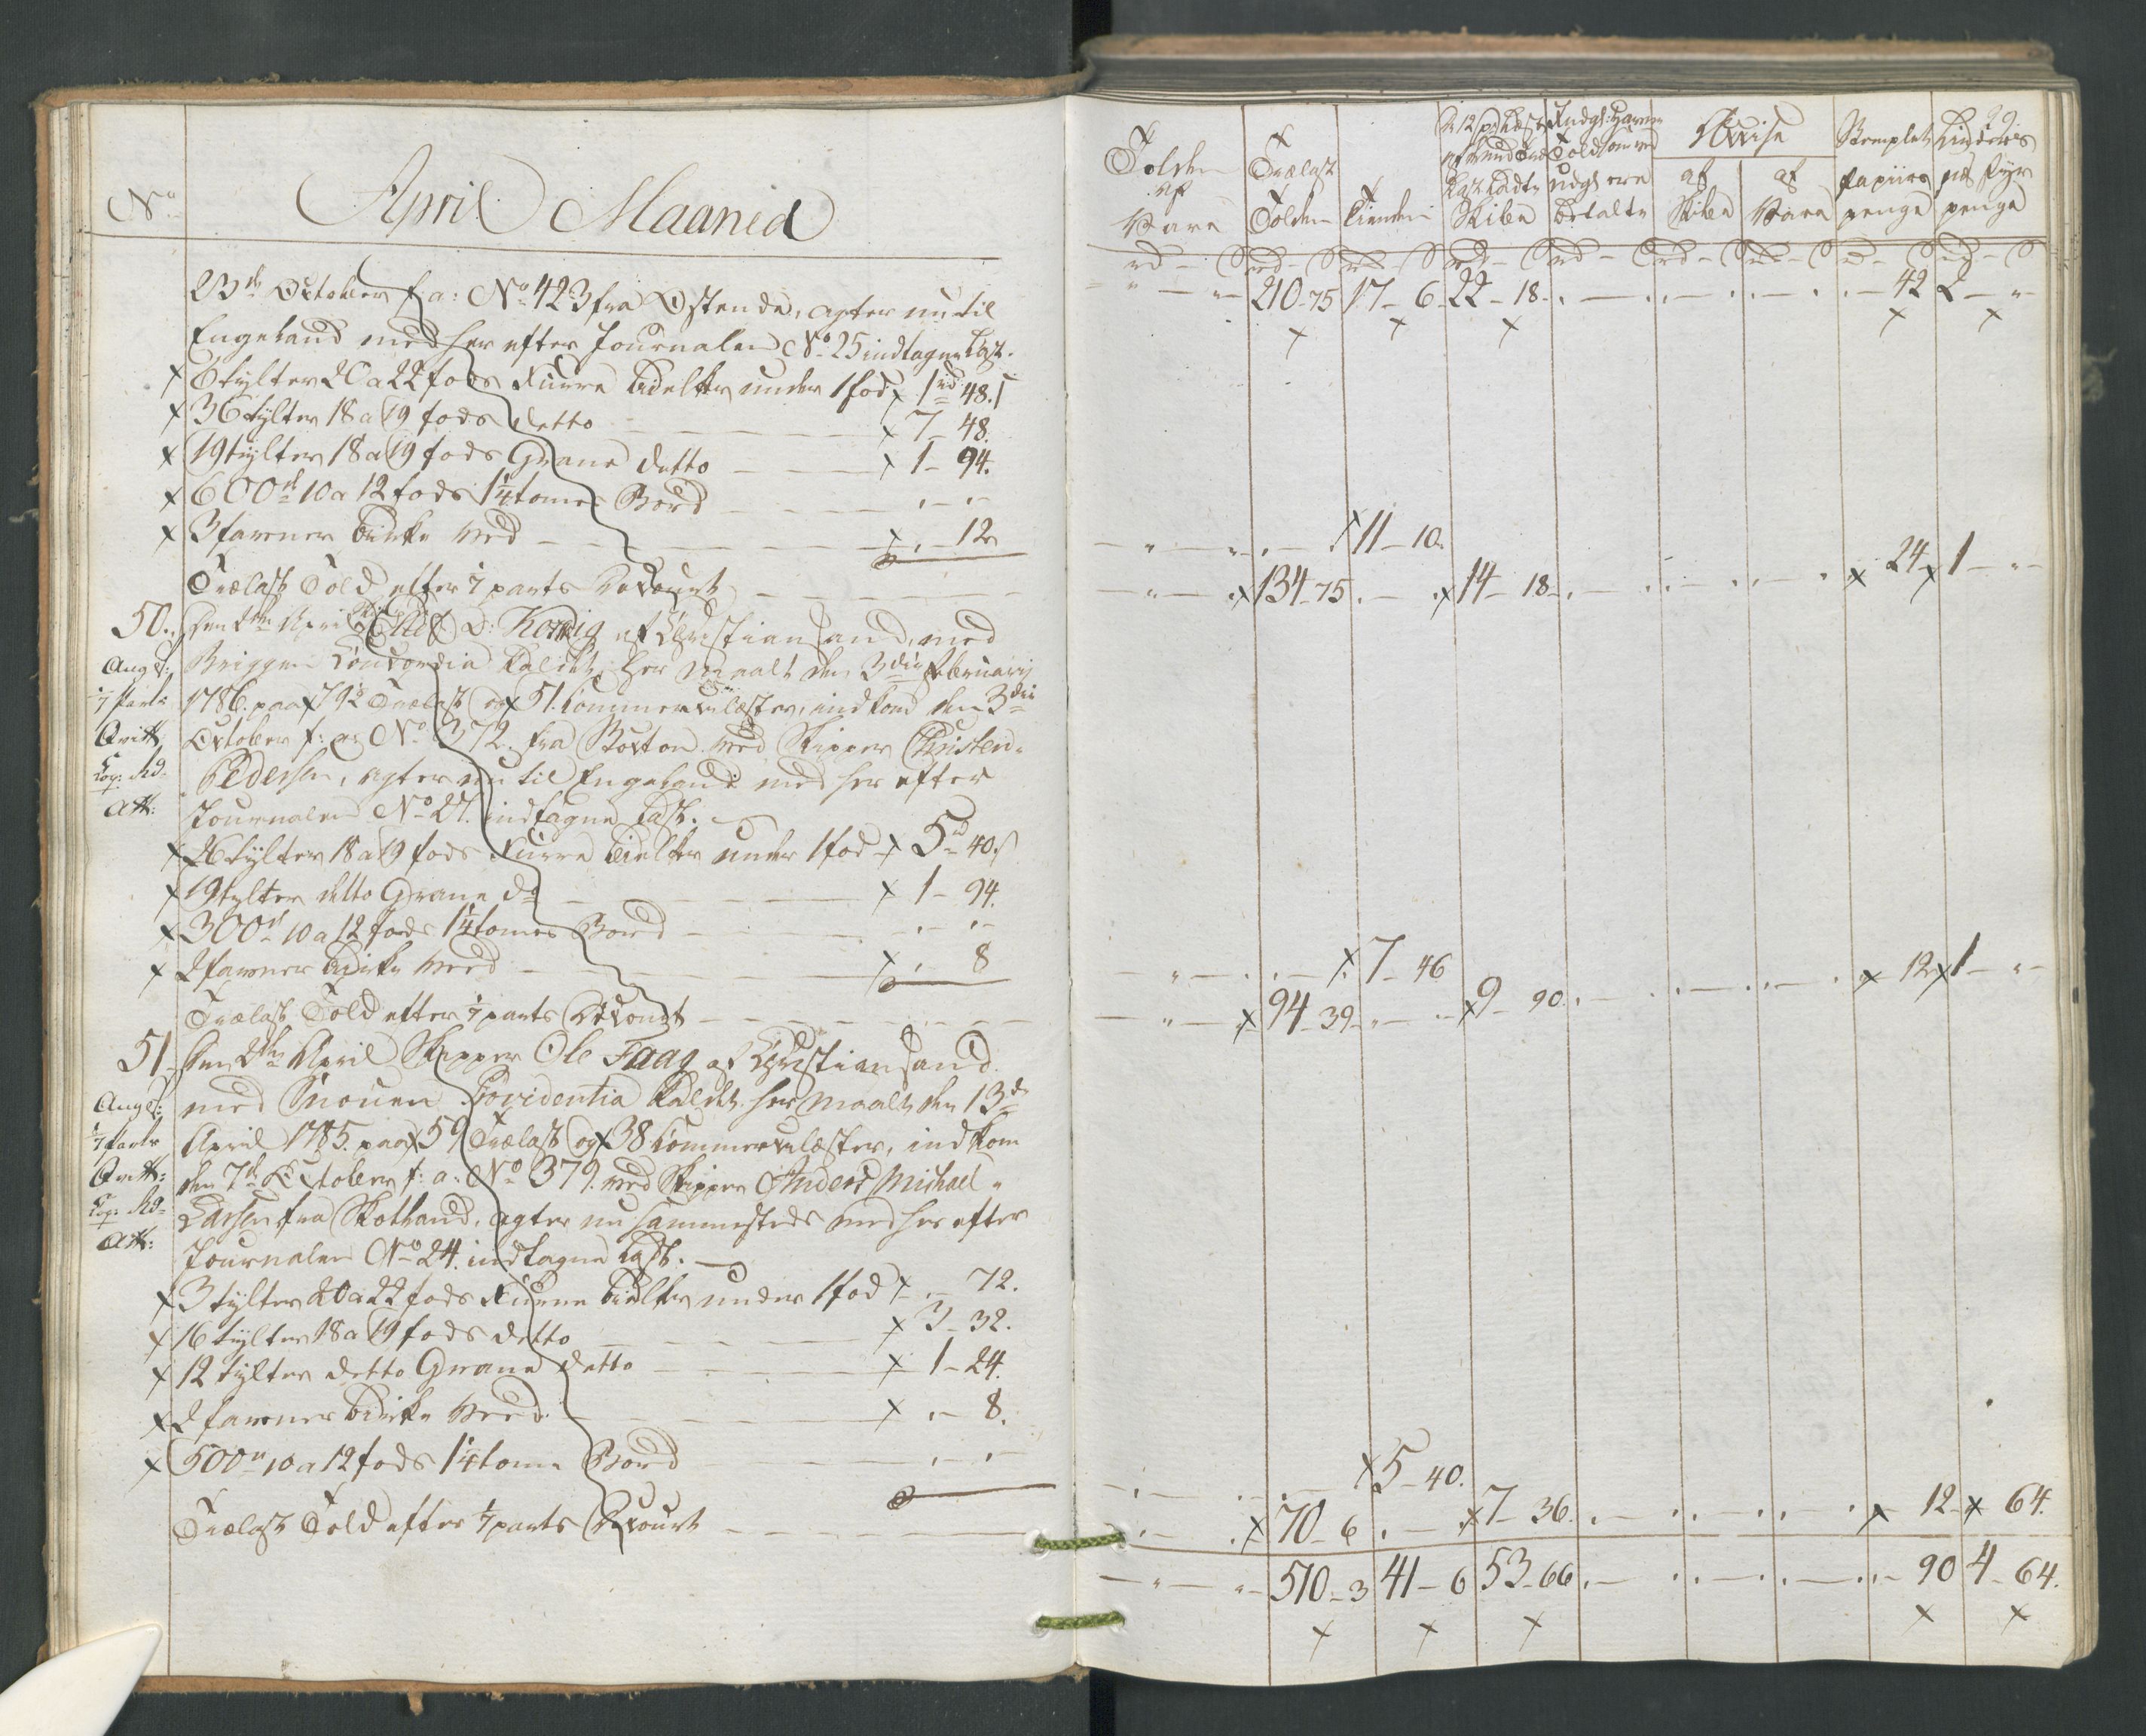 No
April Maaned
23de October f: a: No 423 fra Ostende, agter nu til
Engeland med her efter Journalen No 25 indtagne Last.
x 6 tylter 20 a 22 fods Furre Bielker under 1 fod x 1 rd 48 s
x 36 tylter 18 a 19 fods detto x 7 - 48.
x 19 tylter 18 a 19 fods Grane detto x 1 - 94.
x 600 st 10 a 12 fods 1¼ tomes Bord
x 3 favner Birke Ved x 12
Trælast Told efter 1/7 parts
50. Den 2den April D: Kornig af Christiansand, med
Briggen Concordia kaldet, her maalt den 3die Februarij
1786. paa x 79½ Trælæst og x 51 Commerculæster, indkom den 3die
October f: a: No 372. fra Boston med Skipper Christen
Pedersen, agter nu til Engeland med her efter
Journalen No 27. indtagne Last.
Anges:
1/7 Parts
Qvitt:
Att:
x 26 tylter 18 a 19 fods Furre Bielker under 1 fod x 5 rd 40 s
x 19 tylter detto Grane do x 1 - 94.
x 300 st 10 a 12 fods 1¼ tomes Bord
x 2 favner Birke Ved x 8
Trælast Told efter 1/7 parts
51. Den 2den April Skipper Ole Faag af Christiansand
med Snouen Providentia kaldet her maalt den 13de
April 1785. paa x 59 Trælæst og x 38 Commerculæster, indkom
den 7de October f: a: No 379. med Skipper Anders Michael
Larsen fra Skotland, agter nu sammesteds med her efter
Journalen No 24. indtagne Last.
Anges:
1/7 Parts
Qvitt:
Att:
x 3 tylter 20 a 22 fods Furre Bielker under 1 fod x 72.
x 16 tylter 18 a 19 fods detto x 3 - 32.
x 12 tylter detto Grane detto x 1 - 24.
x 2 favner Birke Ved x 8.
x 500 st 10 a 12 fods 1¼ tome Bord
Trælast Told efter 1/7 parts
29.
Tolden af Vare
Trælast Tolden
Tienden
Skibe
betalte
af Skibe
af Vare
Stemplet Papiirs penge
Fyr penge
210 - 75 17 - 6 22 - 18 42 2 -
x 11 - 10.
x 134 - 75 x 14 - 18 x 24 x 1 -
x 7 - 46
x 94 - 39 x 9 - 90 x 12 x 1 -
x 5 - 40.
x 70 - 6 x 7 - 36 x 12 x 64.
510 - 3 41 - 6 53 - 66 90 4 - 64.